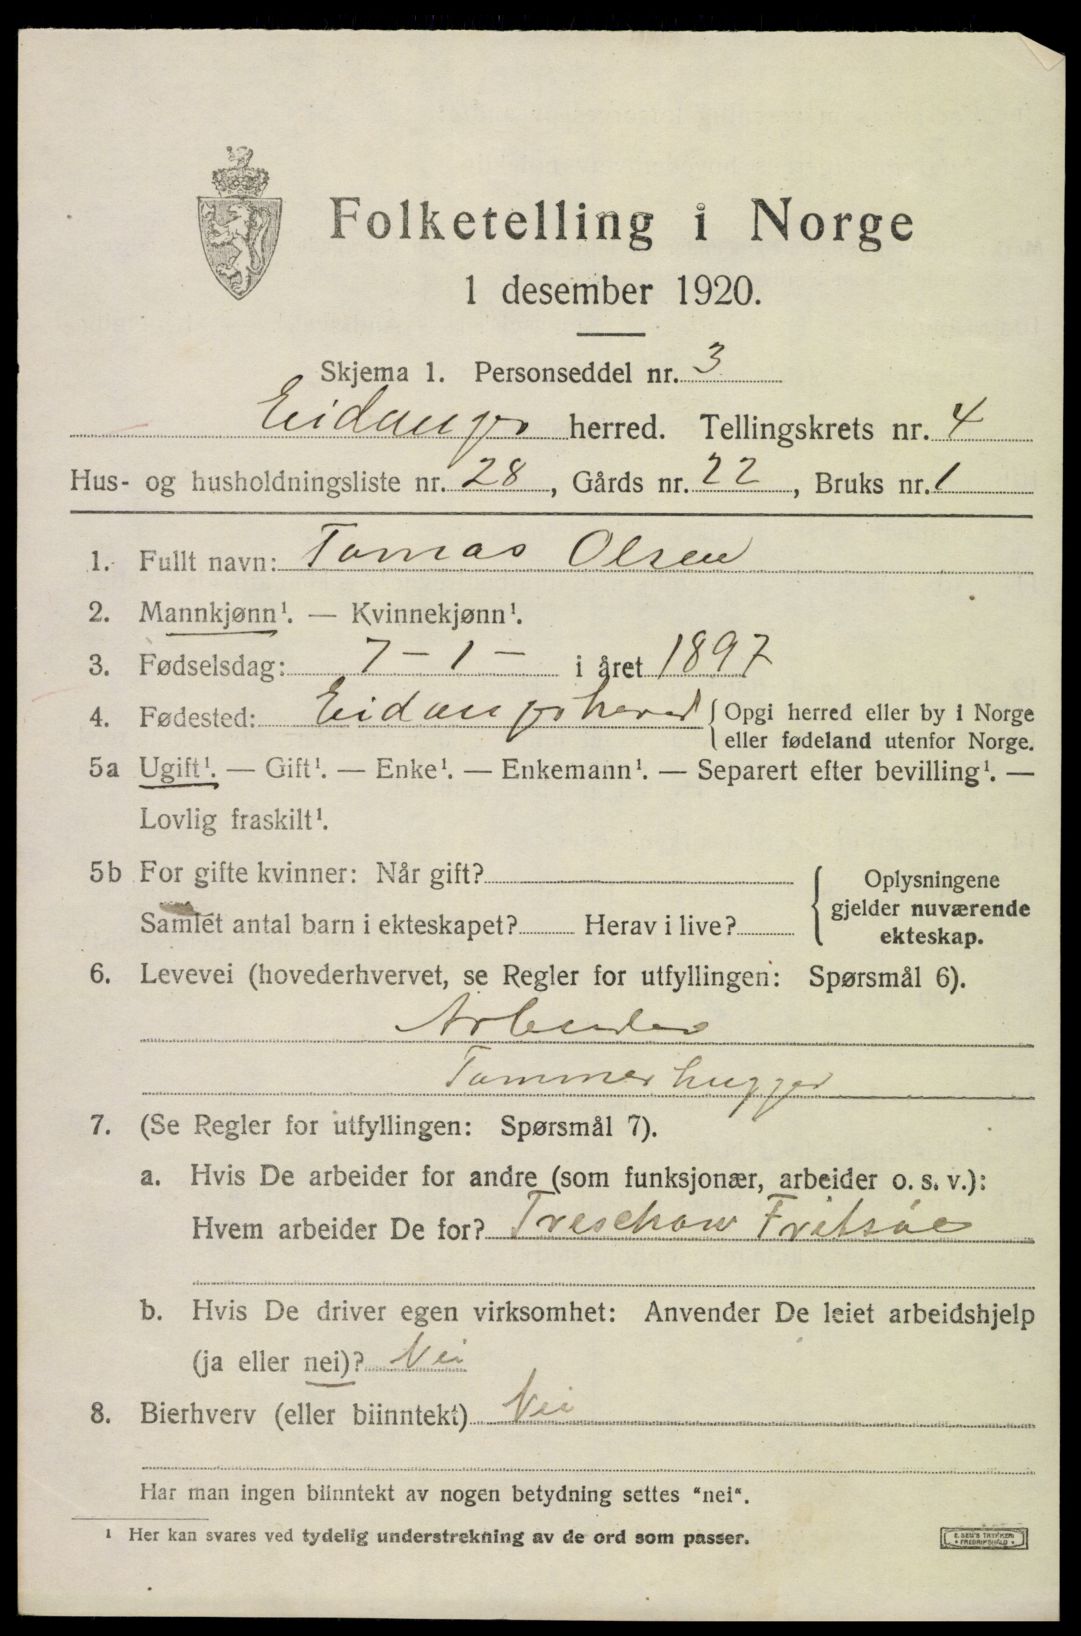 Folketelling i Norge
1 desember 1920.
Skjema 1. Personseddel nr. 3
Eidanger herred. Tellingskrets nr. 4
Hus- og husholdningsliste nr. 28, Gårds nr. 22, Bruks nr. 1
1. Fullt navn: Tomas Olsen
2. Mannkjønn¹. — Kvinnekjønn¹.
3. Fødselsdag: 7 – 1 – i året 1897
4. Fødested: Eidangerherred { Opgi herred eller by i Norge
eller fødeland utenfor Norge.
5a Ugift¹. — Gift¹. — Enke¹. — Enkemann¹. — Separert efter bevilling¹. —
Lovlig fraskilt¹.
5b For gifte kvinner: Når gift?
Samlet antal barn i ekteskapet? Herav i live?
Oplysningene
gjelder nuværende
ekteskap.
6. Levevei (hovederhvervet, se Regler for utfyllingen: Spørsmål 6).
Arbeider
Tømmerhugger
7. (Se Regler for utfyllingen: Spørsmål 7).
a. Hvis De arbeider for andre (som funksjonær, arbeider o. s. v.):
Hvem arbeider De for? Treschow Fritsøe
b. Hvis De driver egen virksomhet: Anvender De leiet arbeidshjelp
(ja eller nei)? Nei
8. Bierhverv (eller biinntekt) Nei
Har man ingen biinntekt av nogen betydning settes "nei".
¹ Her kan svares ved tydelig understrekning av de ord som passer.
E. SEM'S TRYKKERI
FREDRIKSHALD